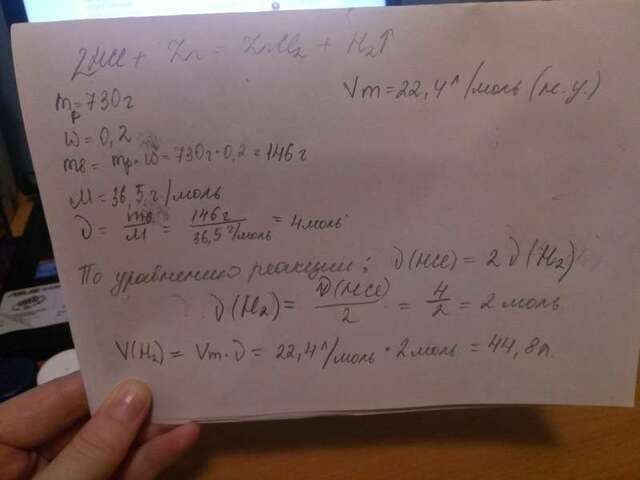 2HCl + Zn = ZnCl₂ + H₂↑
Vm = 22,4 л/моль (н.у.)
mр = 730 г
w = 0,2
mв = mр · w = 730 г · 0,2 = 146 г
M = 36,5 г/моль
ν = mв/M = 146 г / 36,5 г/моль = 4 моль
По уравнению реакции: ν(HCl) = 2ν(H₂)
ν(H₂) = ν(HCl)/2 = 4/2 = 2 моль
V(H₂) = Vm · ν = 22,4 л/моль · 2 моль = 44,8 л.